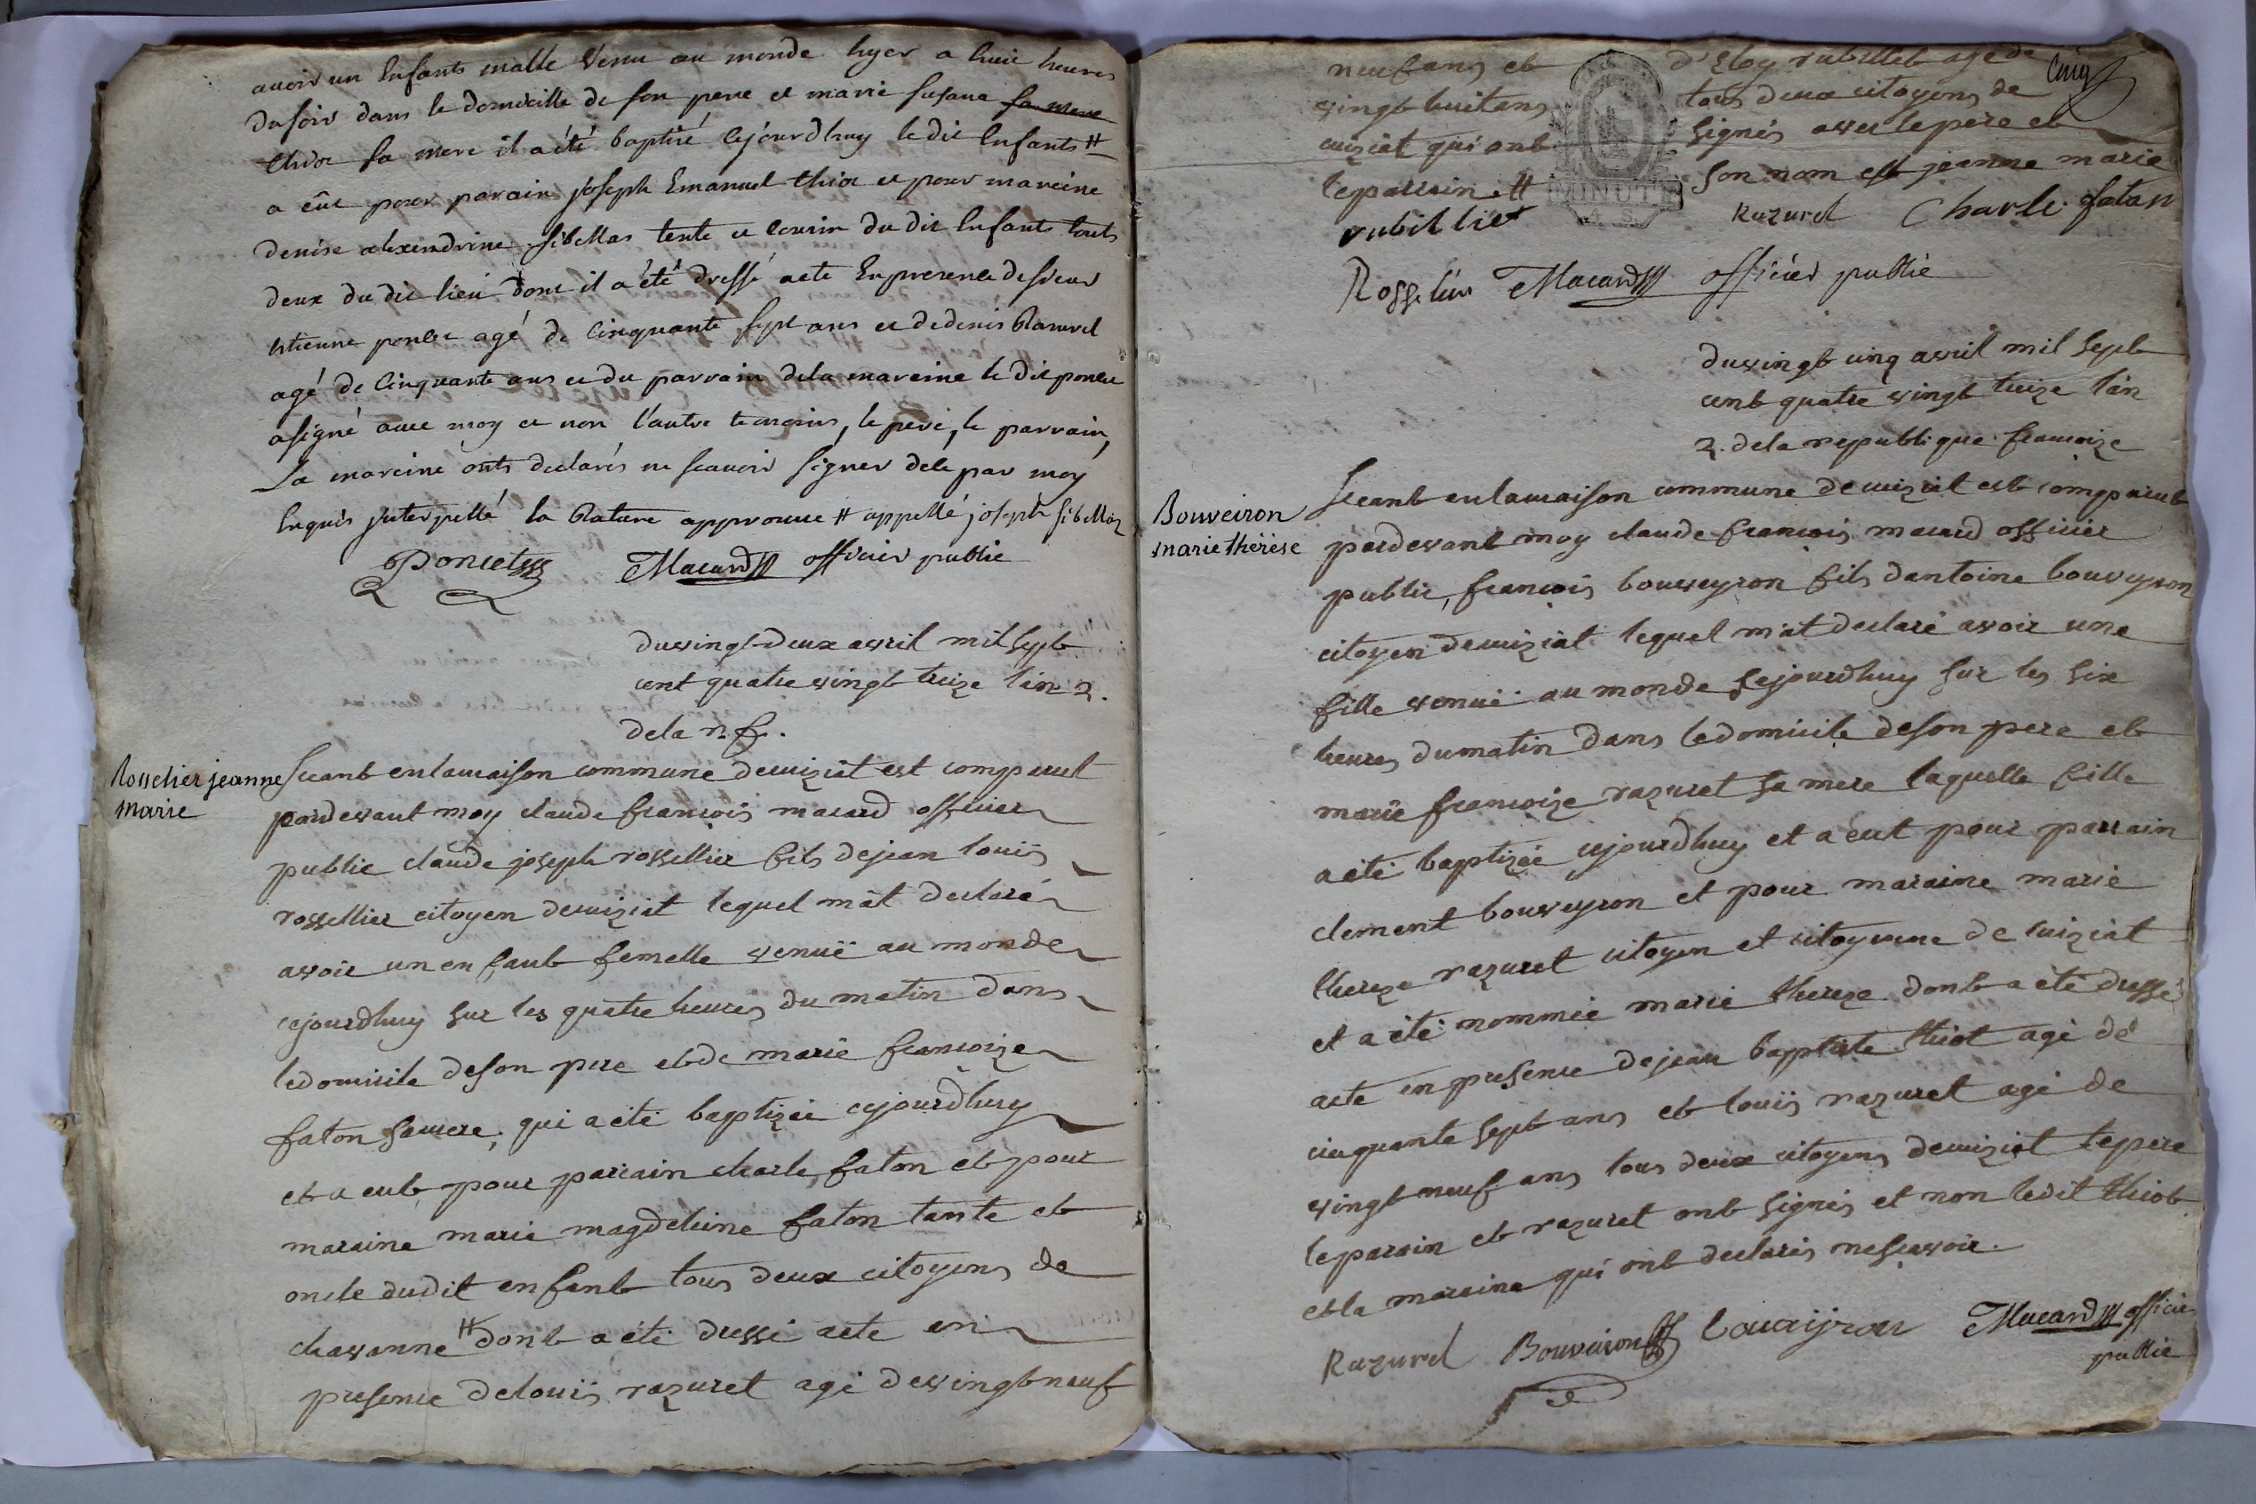 avoir un Enfants malle Venu au monde hyer a huit heures
du soir dans le domicille de son pere et marie susane sa mere
thiot sa mere il a été baptisé cejourdhuy le dit Enfants #
a eût pour parain joseph Emanuel thiot et pour mareine
denise alexendrine sibellas tente et cousin du dit Enfants touts
deux du dit lieu dont il a été dressé acte En presence de sieur
Etienne poncet agé de Cinquante sept ans et de denis Razurel
agé de Cinquante ans et du parrain de la mareine le dit poncet
a signé avec moy et non l'autre temoins, le pere, le parrain,
La mareine onts declarés ne scavoir signer de le par moy
Enquis jnterpellé la Rature approuvé # appellé joseph sibellas
Poncet Macard officier public
du vingt-deux avril mil sept
cent quatre vingt treize l'an 2.
de la r. f.
Rosselier jeanne
marie
Sceant en la maison commune de cuiziat est comparut
pardevant moy claude françois macard officier
public claude joseph rossellier fils de jean louis
rossellier citoyen de cuiziat lequel m'at declaré
avoir un enfant femelle venuë au monde
cejourdhuy sur les quatre heures du matin dans
le domicile de son pere et de marie françoize
faton sa mere, qui a eté baptizée cejourdhuy
et a eut pour parrain charle faton et pour
maraine marie magdeleine faton tante et
oncle dudit enfant tous deux citoyens de
chavanne # dont a eté dressé acte en
presence de louis razuret agé de vingt neuf
neuf ans et d'Eloy rubillet agé de
vingt huit ans tous deux citoyens de
cuiziat qui ont signés avec le pere et
le parrain # son nom est jeanne marie
cinq
MINUTE
rubillet Razurel Charle faton
Rosselier Macard officier public
du vingt cinq avril mil sept
cent quatre vingt treize l'an
2. de la republique françoize
Bouveiron
marie thérèse
Sceant en la maison commune de cuiziat est comparut
pardevant moy claude françois macard officier
public, françois bouveyron fils dantoine bouveyron
citoyen de cuiziat lequel m'at declaré avoir une
fille venuë au monde cejourdhuy sur les six
heures du matin dans le domicile de son pere et
marie françoize razuret sa mere laquelle fille
a eté baptizée cejourdhuy et a eut pour parrain
clement bouveyron et pour maraine marie
thereze razuret citoyen et citoyenne de cuiziat
et a eté nommée marie thereze dont a eté dressé
acte en presence de jean baptiste thiot agé de
cinquante sept ans et louis razuret agé de
vingt neuf ans tous deux citoyens de cuiziat le pere
le parain et razuret ont signés et non ledit thiot
et la maraine qui ont declarés ne scavoir.
Razurel Bouveiron bouvijron Macard officier
public